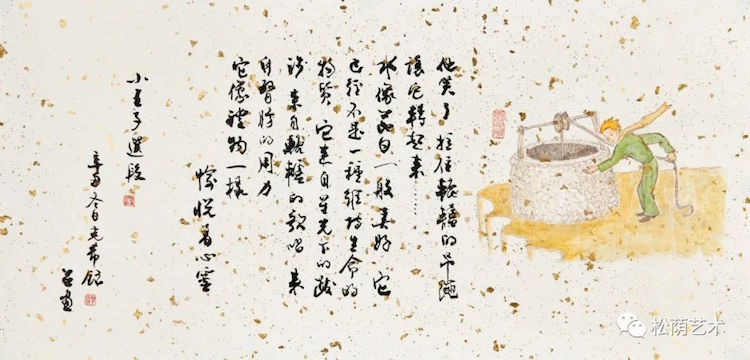 他笑了 拉住轆轤的吊繩
讓它轉起來……
水像節日一般美好 它
已經不是一種維持生命的
物質 它來自星光下的跋
涉 來自轆轤的歌唱 來
自臂膀的用力
它像禮物一樣
愉悅着心靈
小王子選段
辛丑冬日克希録
畫
松荫艺术